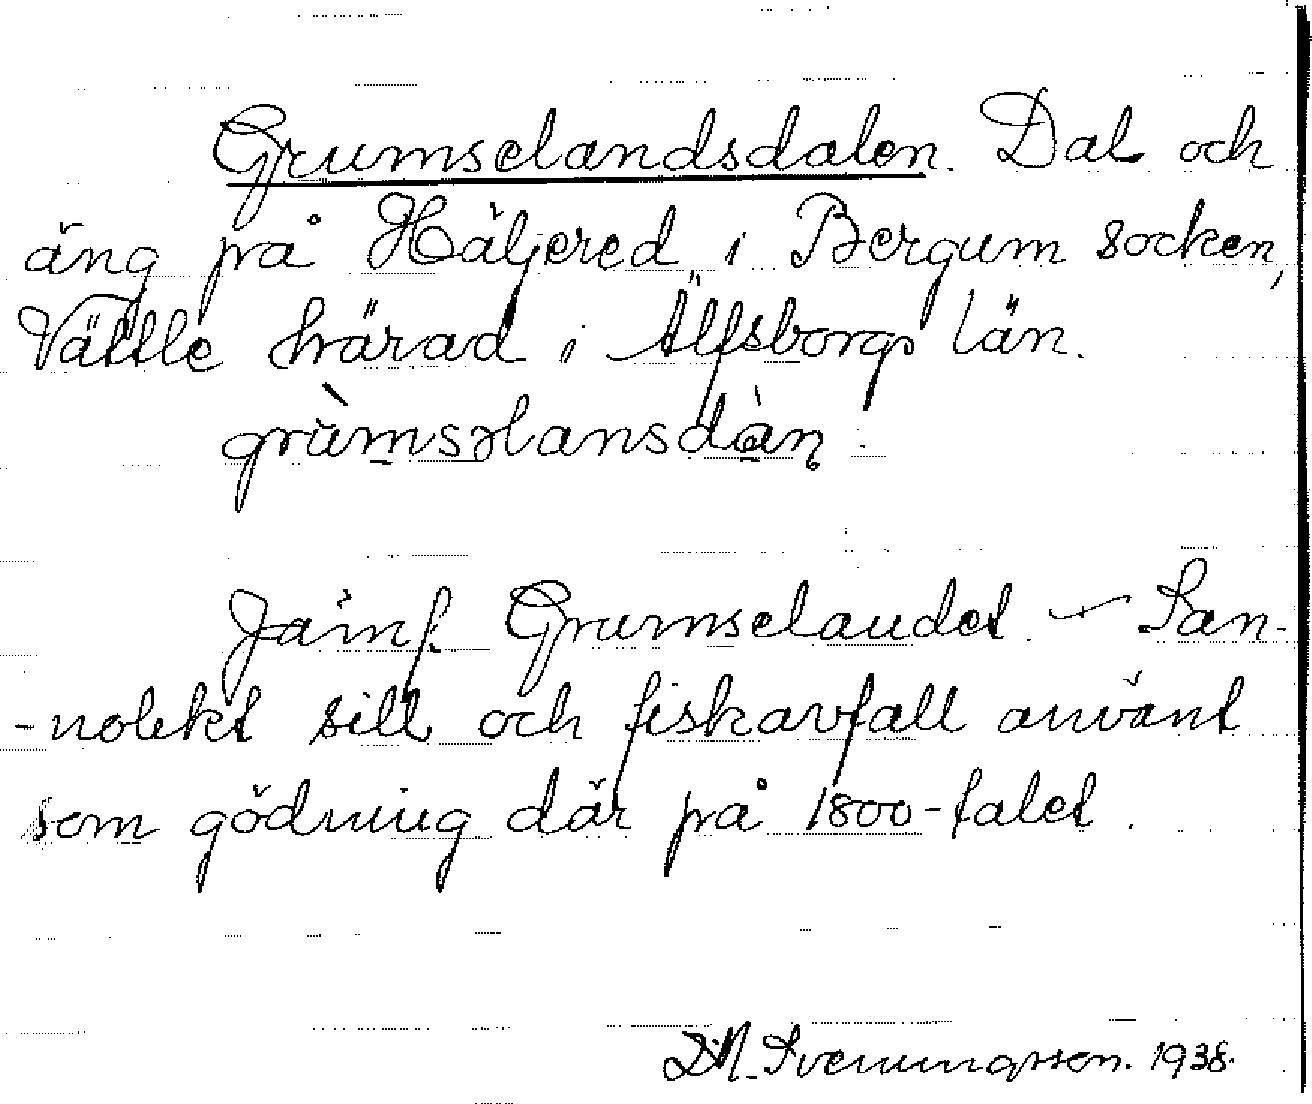 Grumselandsdalen. Dal och
äng på Häljered i Bergum socken,
Vättle härad i Älfsborgs län.
grùmsəlansdàn.
Jämf. Grumselandet. – San-
-nolikt sill och fiskavfall använt
som gödning där på 1800-talet.
Svenningsson. 1938.